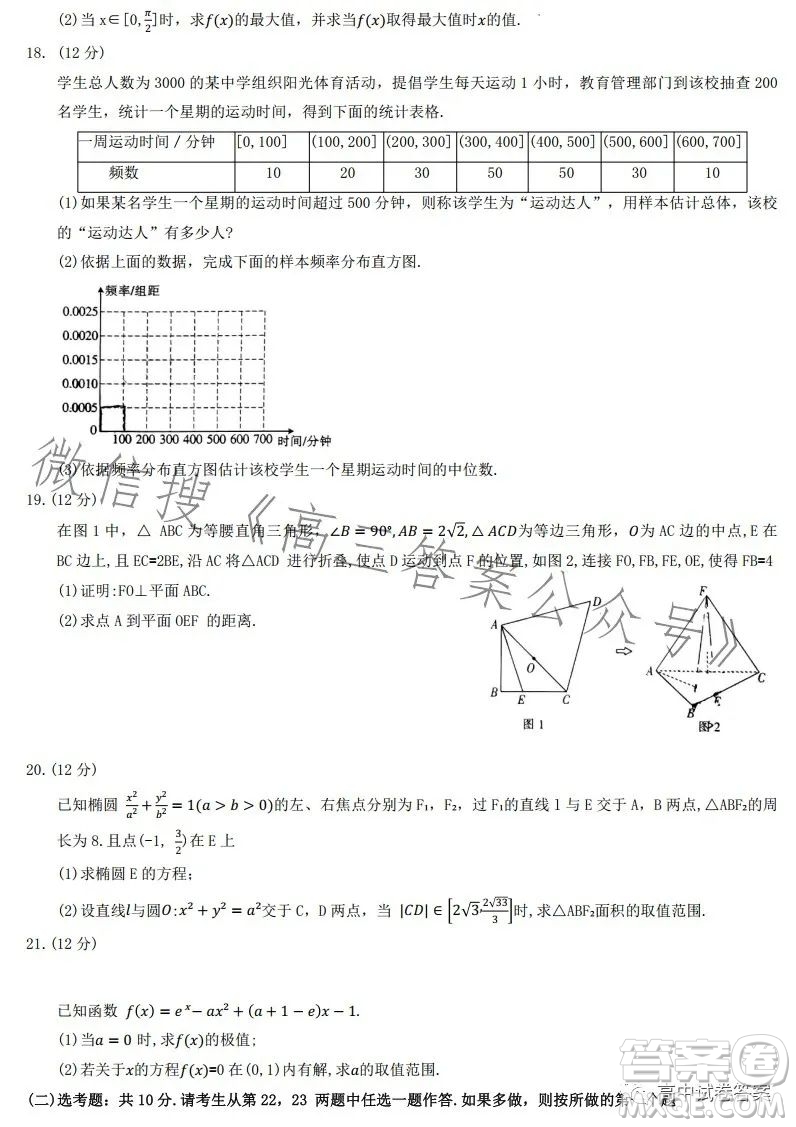 (2)当 x∈[0,π/2]时，求f(x)的最大值，并求当f(x)取得最大值时x的值.
18. (12 分)
学生总人数为 3000 的某中学组织阳光体育活动，提倡学生每天运动 1 小时，教育管理部门到该校抽查 200
名学生，统计一个星期的运动时间，得到下面的统计表格.
一周运动时间 / 分钟 [0,100] (100,200] (200,300] (300,400] (400,500] (500,600] (600,700]
频数 10 20 30 50 50 30 10
(1)如果某名学生一个星期的运动时间超过 500 分钟，则称该学生为“运动达人”，用样本估计总体，该校
的“运动达人”有多少人?
(2)依据上面的数据，完成下面的样本频率分布直方图.
频率/组距
0.0025
0.0020
0.0015
0.0010
0.0005
0
100 200 300 400 500 600 700 时间/分钟
(3)依据频率分布直方图估计该校学生一个星期运动时间的中位数.
19.(12 分)
在图 1 中，△ ABC 为等腰直角三角形，∠B=90°,AB=2√2,△ACD为等边三角形，O为 AC 边的中点,E 在
BC 边上,且 EC=2BE,沿 AC 将△ACD 进行折叠,使点 D 运动到点 F 的位置,如图 2,连接 FO,FB,FE,OE,使得 FB=4
(1)证明:FO⊥平面 ABC.
(2)求点 A 到平面 OEF 的距离.
A D O B E C
图 1
⇨
F A C B E
图 2
20.(12 分)
已知椭圆 x²/a²+y²/b²=1(a>b>0)的左、右焦点分别为 F₁, F₂, 过 F₁的直线 l 与 E 交于 A，B 两点,△ABF₂的周
长为 8.且点(-1, 3/2)在 E 上
(1)求椭圆 E 的方程；
(2)设直线l与圆O:x²+y²=a²交于 C，D 两点，当 |CD|∈[2√3,2√33/3]时,求△ABF₂面积的取值范围.
21.(12 分)
已知函数 f(x)=eˣ−ax²+(a+1−e)x−1.
(1)当a=0 时,求f(x)的极值;
(2)若关于x的方程f(x)=0 在(0,1)内有解,求a的取值范围.
(二)选考题: 共 10 分.请考生从第 22, 23 两题中任选一题作答.如果多做，则按所做的第一个题
微信搜《高三答案公众号》
高中试卷答案